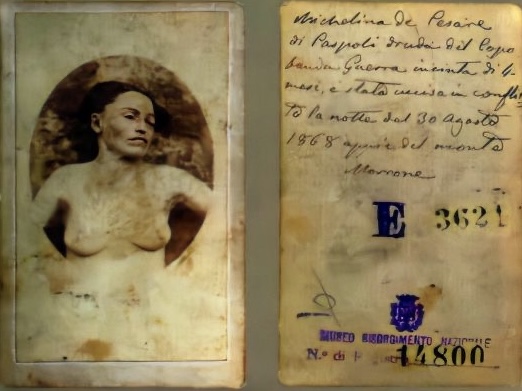 Michelina de Cesare
di Caspoli druda del Capo
banda Guerra incinta di 4
mesi, è stata uccisa in confli
to la notte del 30 Agosto
1868 del monte
Morrone
E 3621
MUSEO RISORGIMENTO NAZIONALE
N.º di
14800